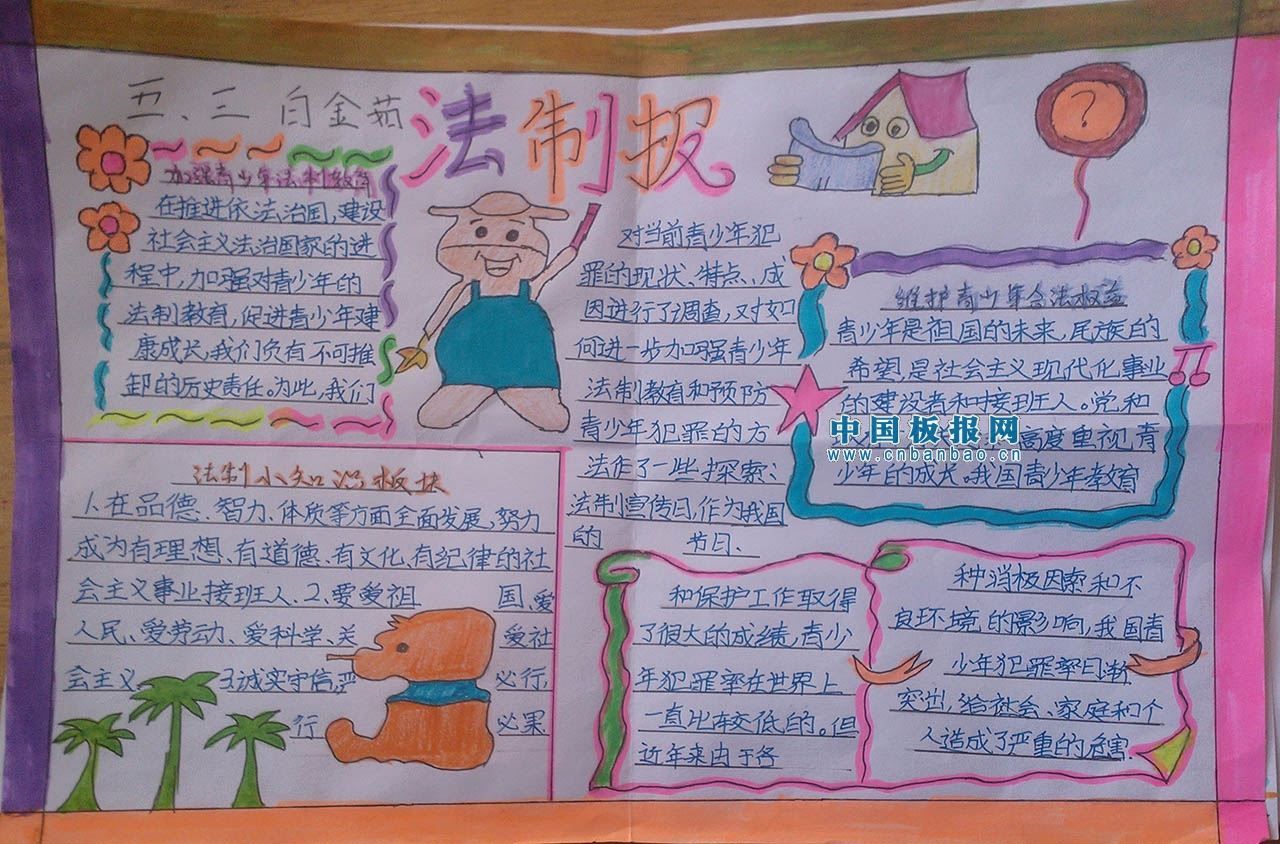 五、三 白金茹
法制报
加强青少年法制教育
在推进依法治国,建设
社会主义法治国家的进
程中,加强对青少年的
法制教育,促进青少年建
康成长,我们负有不可推
卸的历史责任。为此,我们
对当前青少年犯
罪的现状、特点、成
因进行了调查,对如
何进一步加强青少年
法制教育和预防
青少年犯罪的方
法作了一些探索:
法制宣传日,作为我国
的 节日、
?
维护青少年合法权益
青少年是祖国的未来,民族的
希望,是社会主义现代化事业
的建设者和接班人。党和
高度重视,青
少年的成长。我国青少年教育
中国板报网
www.cnbanbao.cn
法制小知识板块
1、在品德、智力、体质等方面全面发展,努力
成为有理想、有道德、有文化、有纪律的社
会主义事业接班人、2、要爱祖 国、爱
人民、爱劳动、爱科学、关 爱社
会主义 3诚实守信,严 必行,
行 必果
和保护工作取得
了很大的成绩,青少
年犯罪率在世界上
一直比较低的。但
近年来由于各
种消极因索和不
良环境的影响,我国青
少年犯罪率日渐
突出,给社会、家庭和个
人造成了严重的危害